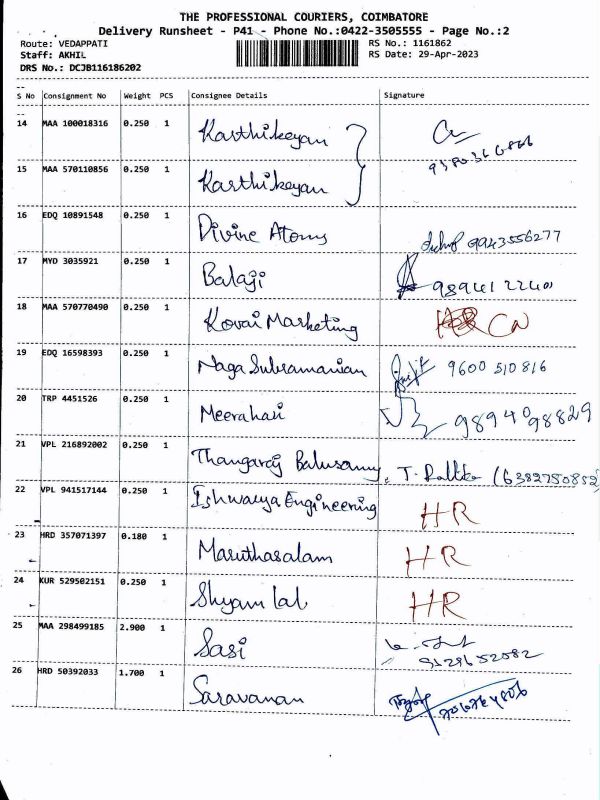 THE PROFESSIONAL COURIERS, COIMBATORE
Delivery Runsheet - P41 - Phone No.:0422-3505555 - Page No.:2
Route: VEDAPPATI RS No.: 1161862
Staff: AKHIL RS Date: 29-Apr-2023
DRS No.: DCJB116186202
S No Consignment No Weight PCS Consignee Details Signature
14 MAA 100018316 0.250 1 Karthikeyan
15 MAA 570110856 0.250 1 Karthikeyan
16 EDQ 10891548 0.250 1 Divine Atoms 9943556277
17 MYD 3035921 0.250 1 Balaji
18 MAA 570770490 0.250 1 Kovai Marketing CN
19 EDQ 16598393 0.250 1 Naga Subramanian 9600 510816
20 TRP 4451526 0.250 1 Meerahari 9894098829
21 VPL 216892002 0.250 1 Thangaraj Balusamy (6382750852)
22 VPL 941517144 0.250 1 Ishwarya Engineering HR
23 HRD 357071397 0.180 1 Maruthasalam HR
24 KUR 529502151 0.250 1 Shyam lal HR
25 MAA 298499185 2.900 1 Sasi
26 HRD 50392033 1.700 1 Saravanan